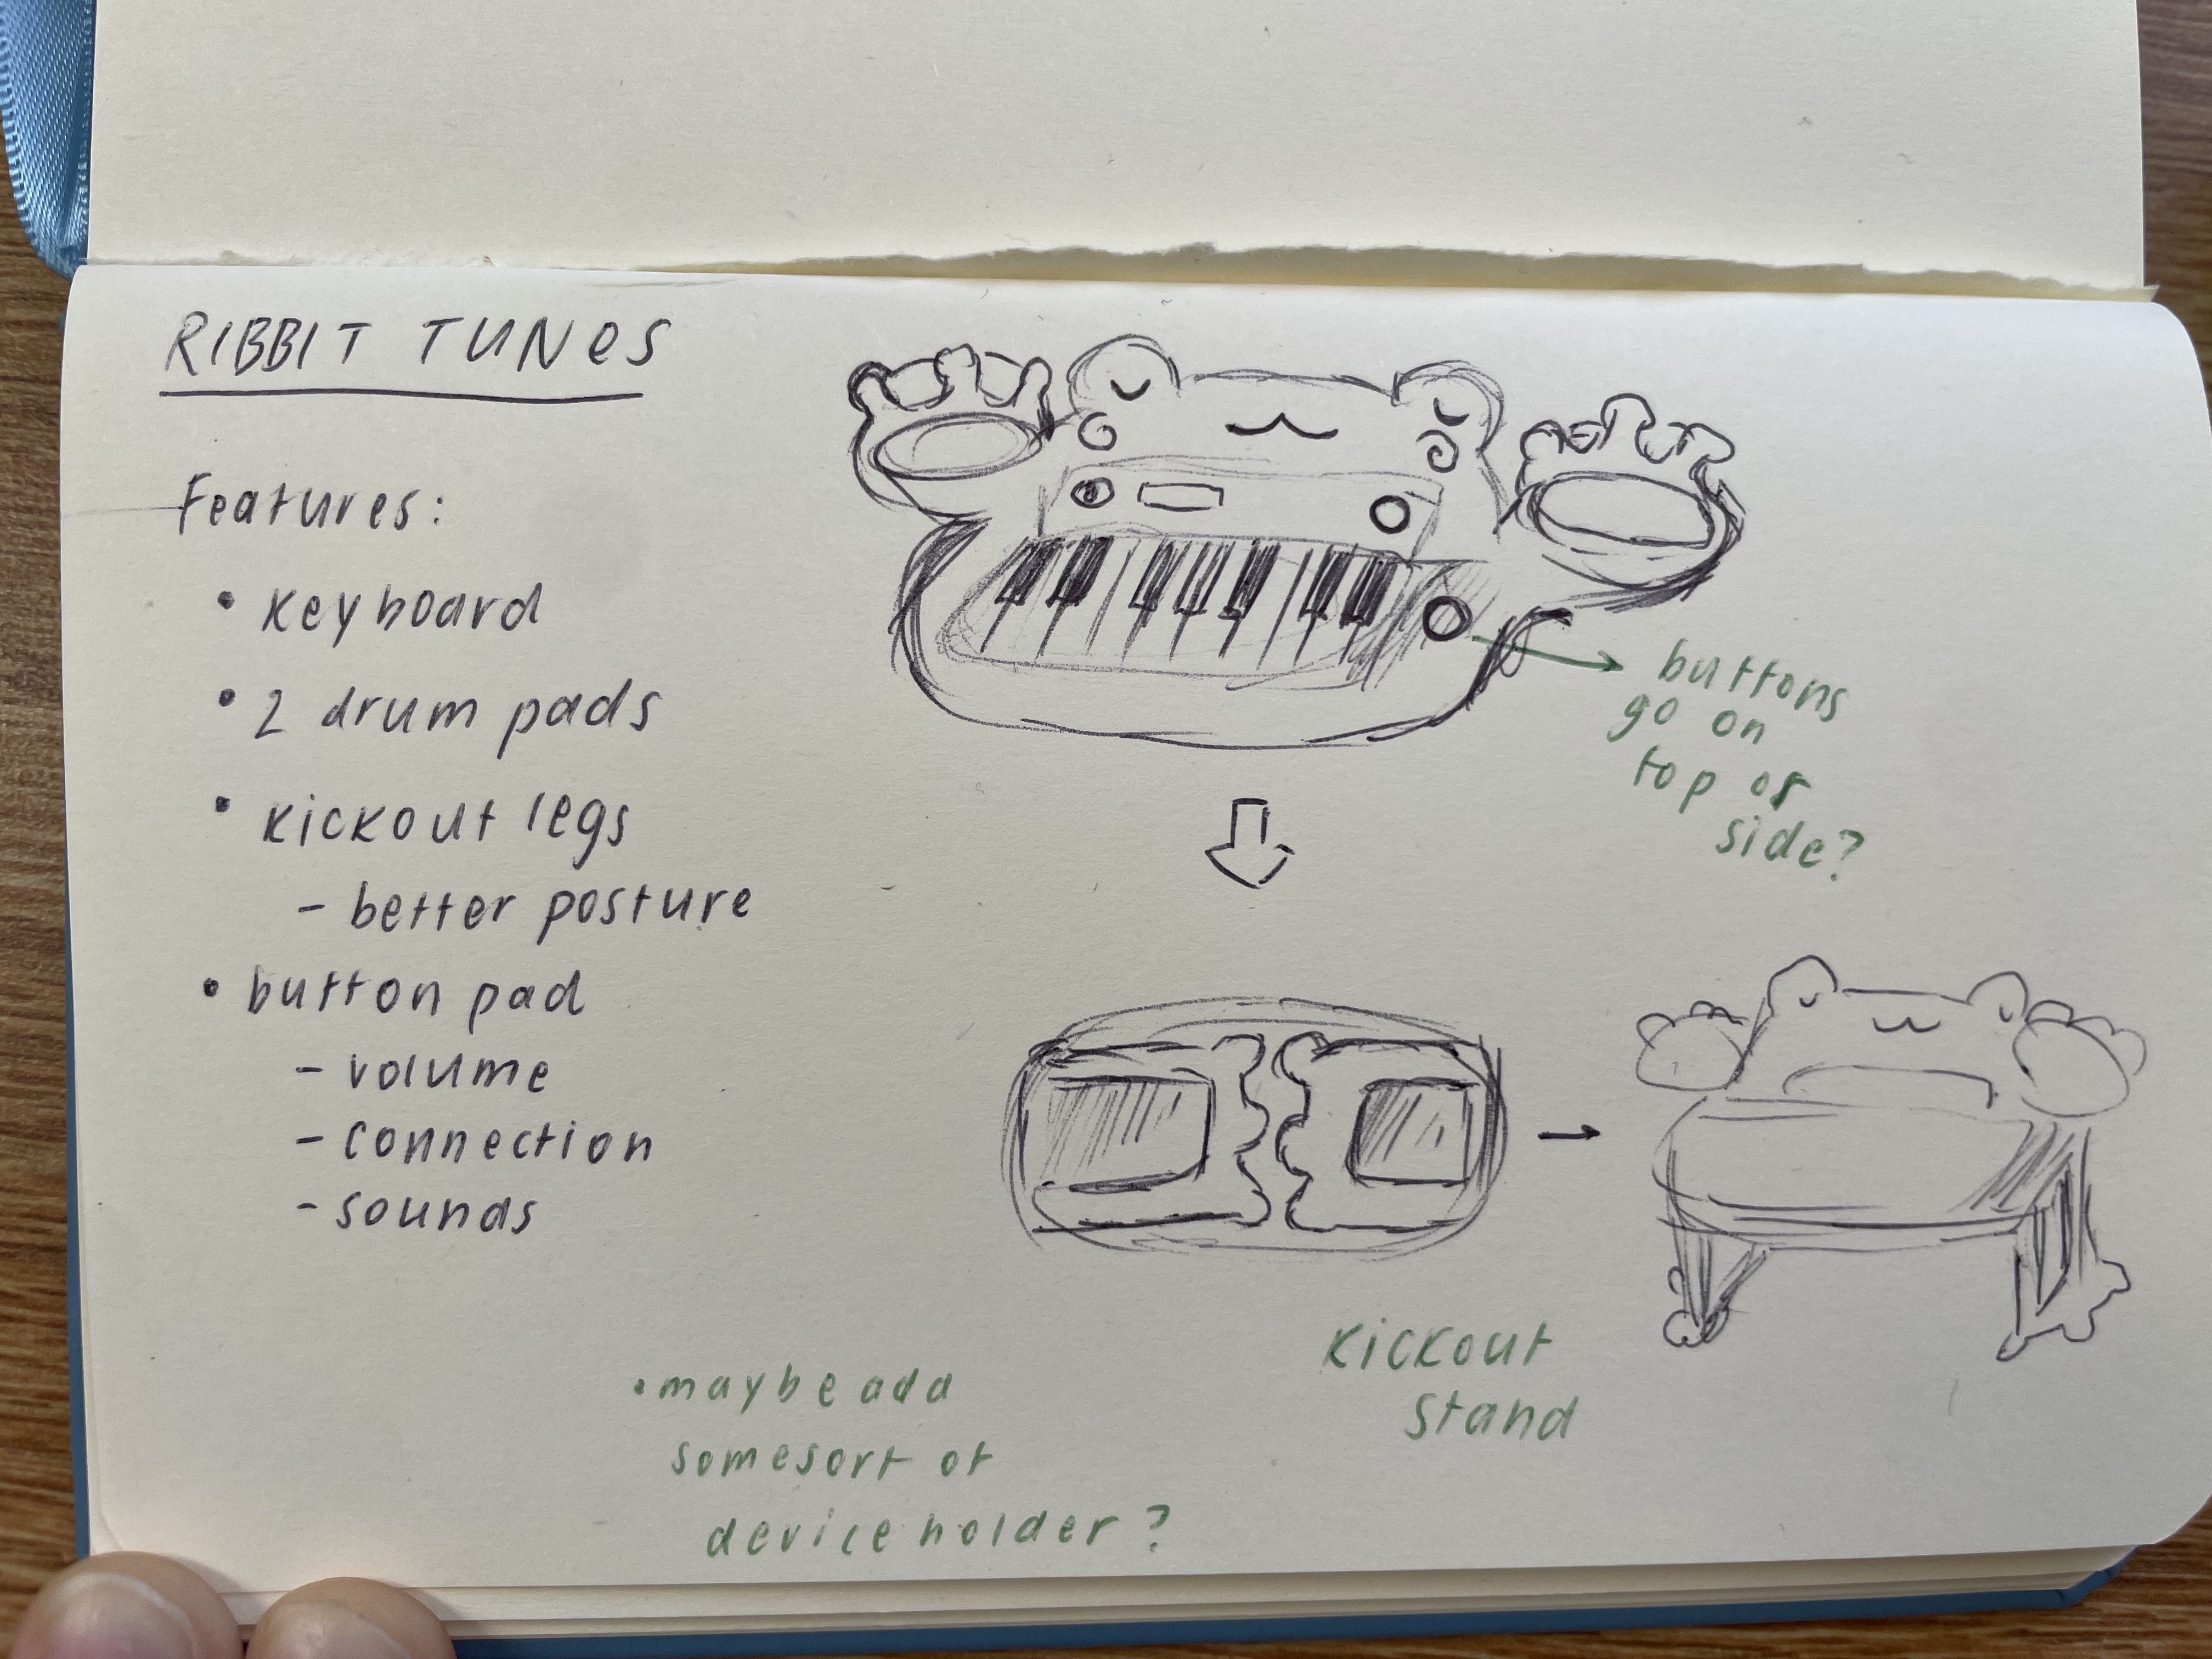 RIBBIT TUNES
Features:
• keyboard
• 2 drum pads
• kickout legs
- better posture
• button pad
- volume
- connection
- sounds
buttons
go on
top or
side?
kickout
stand
• maybe add
somesort of
device holder?